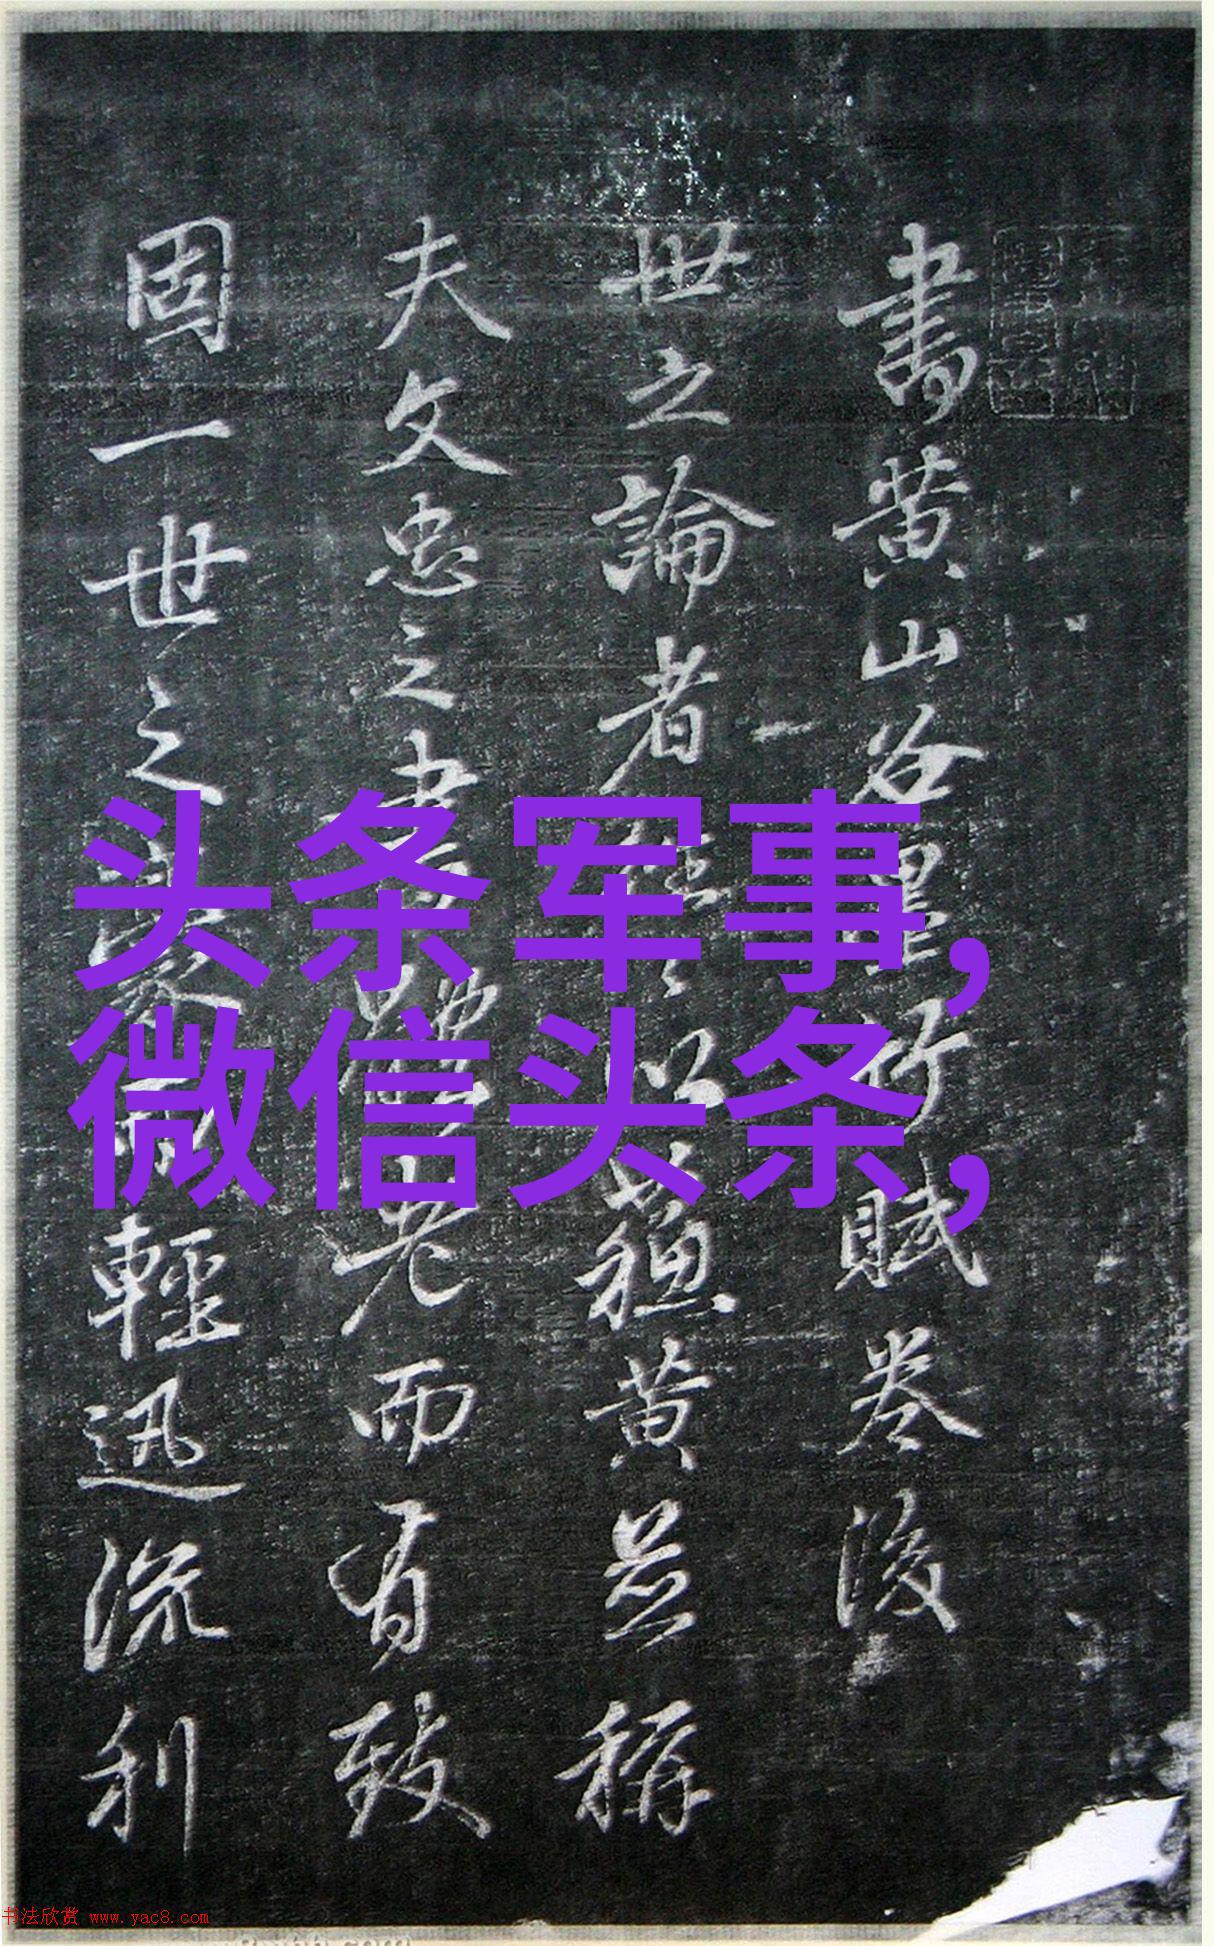 書黄山谷竹賦卷後
世之論者以蘇黄並稱
夫文忠之書體老而有致
固一世之輕迅流利
头条军事,
微信头条,
书法欣赏 www.yac8.com